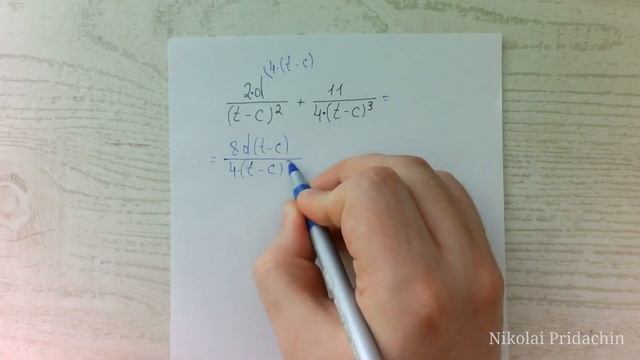 4·(t-c)
2·d/(t-c)² + 11/4·(t-c)³ =
= 8d(t-c)/4·(t-c)
Nikolai Pridachin